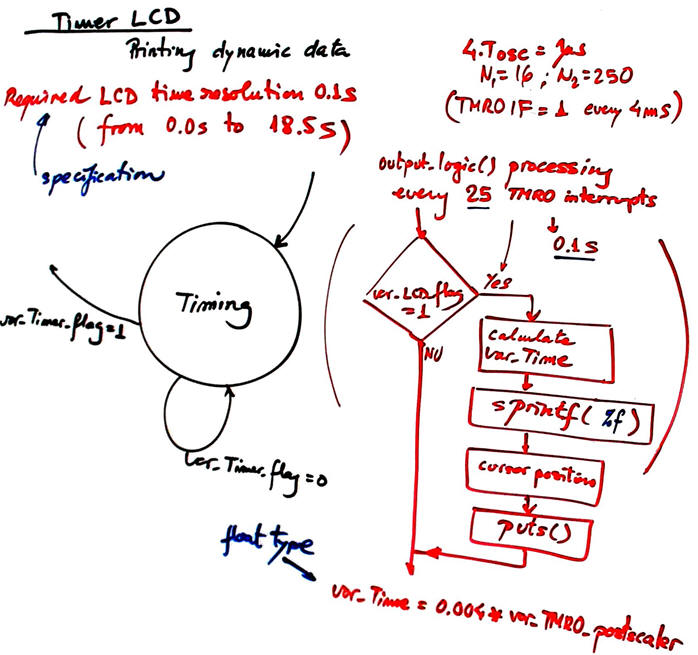 Timer LCD
Printing dynamic data
Required LCD time resolution 0.1s
(from 0.0s to 18.5s)
specification
4.Tosc = 1µs
N1=16 ; N2=250
(TMR0IF = 1 every 4ms)
output_logic() processing
every 25 TMR0 interrupts
0.1s
Timing
var_Timer_flag=1
var_Timer_flag=0
var_LCD_flag
=1
Yes
NO
calculate
var_Time
sprintf( %f )
cursor position
puts()
float type
var_Time = 0.004 * var_TMR0_postscaler